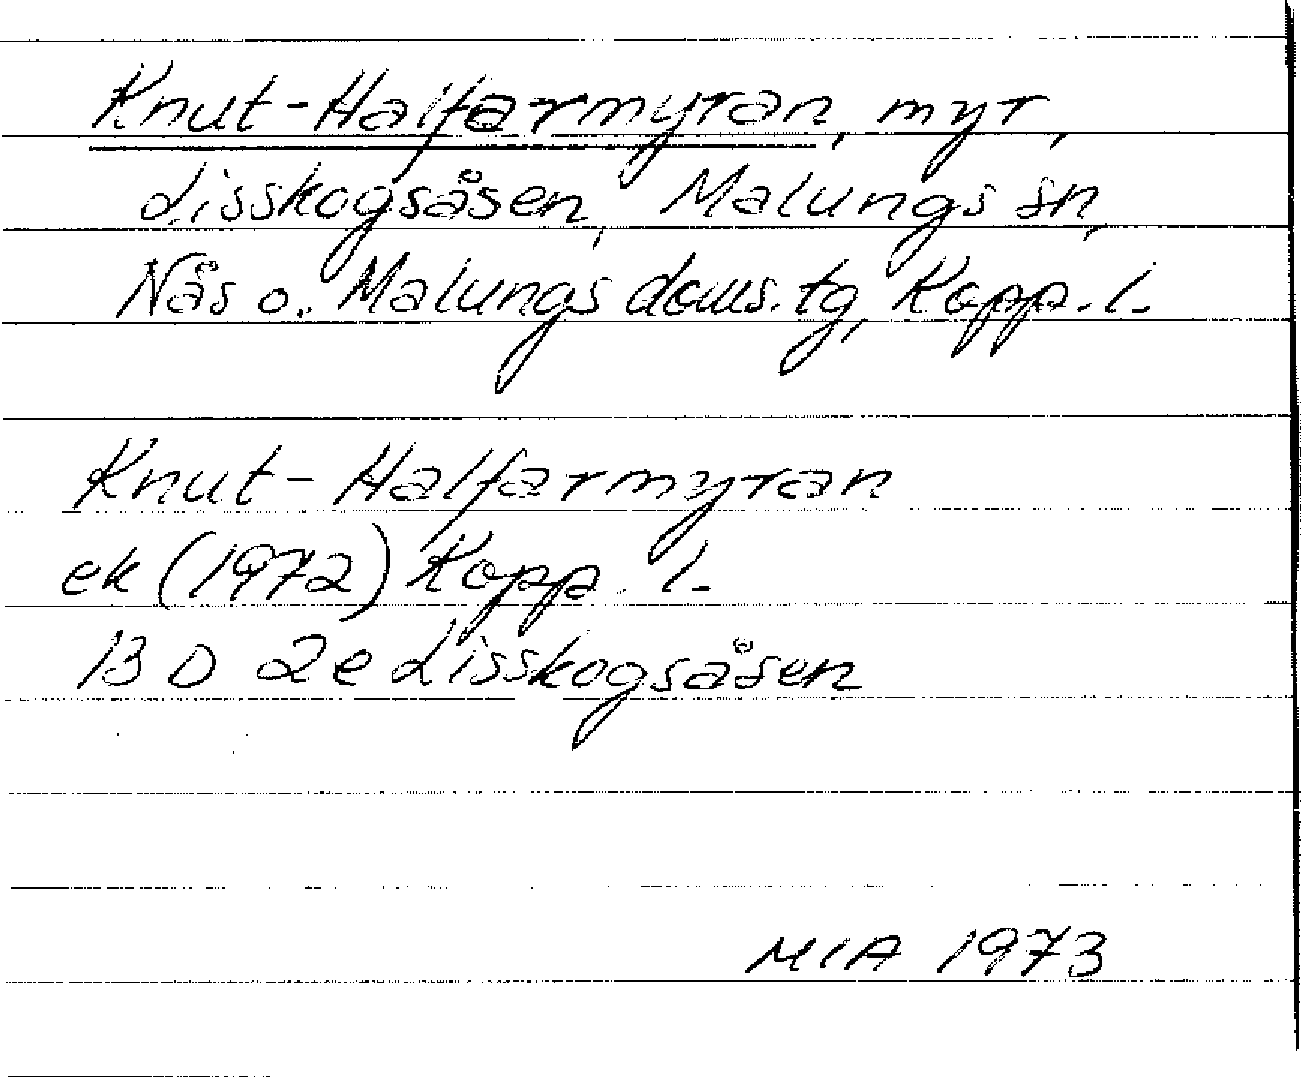 Knut-Halfarmyran, myr,
Lisskogsåsen, Malungs sn,
Nås o. Malungs doms. tg, Kopp. l.
Knut-Halfarmyran
ek (1972) Kopp. l.
13 D 2e Lisskogsåsen
MIA 1973